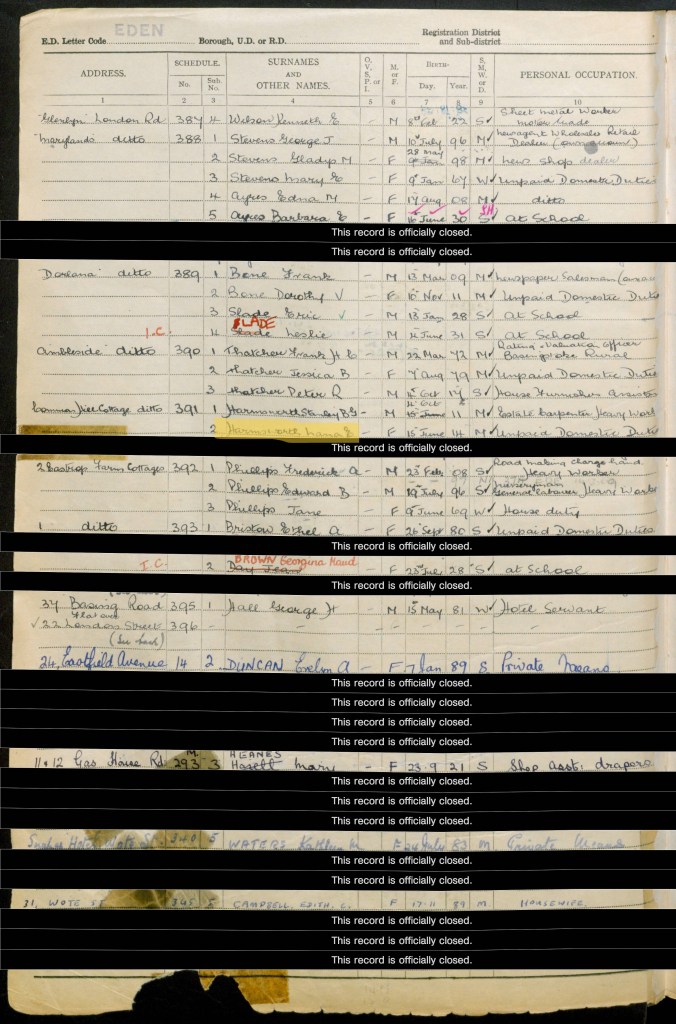 EDEN
E.D. Letter Code Borough, U.D. or R.D. Registration District and Sub-district
ADDRESS. SCHEDULE. No. Sub. No. SURNAMES AND OTHER NAMES. O, V, S, P, or I. M. or F. BIRTH- Day. Year. S, M, W, or D. PERSONAL OCCUPATION.
1 2 3 4 5 6 7 8 9 10
"Glenlyn" London Rd 387 4 Wilson Kenneth E - M 8th Feb 22 S Sheet metal Worker
"Marylands" ditto 388 1 Stevens George J - M 10th July 96 M Newsagent Wholesale Retail Dealer
28 May
2 Stevens Gladys M - F 98 M News Shop dealer
3 Stevens Mary E - F 9th Jan 67 W Unpaid Domestic Duties
4 Ayres Edna M - F 17 Aug 08 M ditto
5 Ayres Barbara E - F 16 June 30 S At School
This record is officially closed.
This record is officially closed.
ditto 389 1 Bone Frank - M 13 Mar 09 M Newspaper Salesman
2 Bone Dorothy V - F 10th Nov 11 M Unpaid Domestic Dutie
3 Slade Eric - M 13th Jan 28 S At School
SLADE
I.C. 4 Slade Leslie - M 4 June 31 S At School
Ambleside ditto 390 1 Thatcher Frank H C - M 22 Mar 72 M Rating & Valuation Officer Basingstoke Rural
2 Thatcher Jessica B - F 7th Aug 79 M Unpaid Domestic Dutie
3 Thatcher Peter R - M Oct 17 S House Furnishers Assistan
Cottage ditto 391 1 Harmsworth Stanley B G - M 11 M Estate Carpenter Heavy Work
2 Harmsworth - F 15th June 14 M Unpaid Domestic Dutie
This record is officially closed.
2 Eastrop Farm Cottages 392 1 Phillips Frederick A - M 23 Feb 08 S Road making charge hand Heavy Worker
2 Phillips Edward B - M 19th July 96 S General Labourer Heavy Worke
3 Phillips Jane - F 9th June 69 W House duty
1 ditto 393 1 Bristow Ethel A - F 26th Sept 80 S Unpaid Domestic Duties
This record is officially closed.
BROWN Georgina Maud
I.C. 2 Day Jean - F 28 S at School
This record is officially closed.
37 Basing Road 395 1 Hall George H - M 15 May 81 W Hotel Servant
Flat over
22 London Street 396 - - - - - -
24, Eastfield Avenue 14 2 DUNCAN Evelyn A - F 7 Jan 89 S Private Means
This record is officially closed.
This record is officially closed.
This record is officially closed.
This record is officially closed.
HEANES
11 & 12 Gas House Rd 293 M 3 Mary - F 23.9 21 S Shop Asst: drapers
This record is officially closed.
This record is officially closed.
This record is officially closed.
Hotel Wote St. 340 5 WATERS Kathleen M F 24 July 83 M Private Means
This record is officially closed.
This record is officially closed.
31, WOTE ST 345 5 CAMPBELL, EDITH, C. F 17.11 89 M HOUSEWIFE.
This record is officially closed.
This record is officially closed.
This record is officially closed.